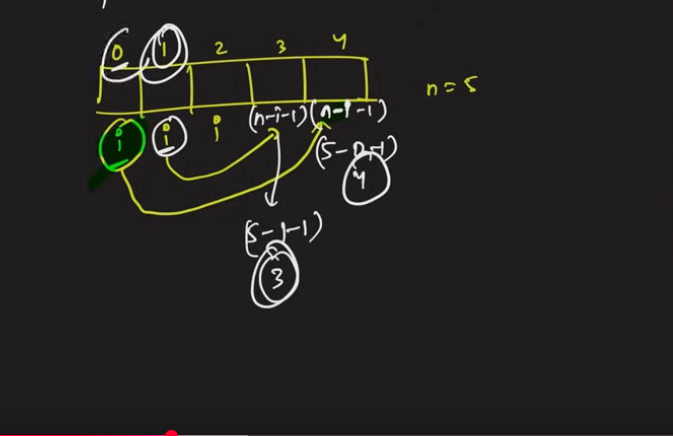 0 1 2 3 4
n = 5
i i i (n-i-1) (n-i-1)
(5-0-1)
4
(5-1-1)
3